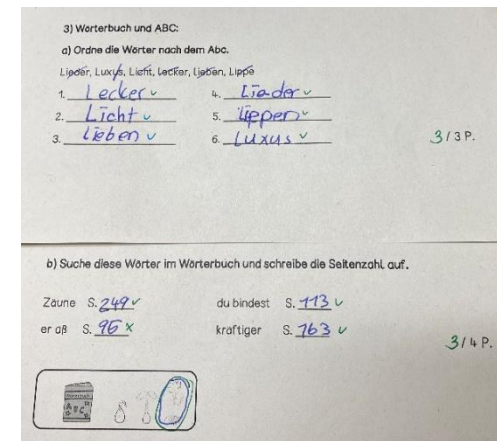 3) Wörterbuch und ABC:
a) Ordne die Wörter nach dem Abc.
Lieder, Luxus, Licht, Lecker, Lieben, Lippe
1. Lecker ✓ 4. Lieder ✓
2. Licht ✓ 5. Lippen ✓
3. Lieben ✓ 6. Luxus ✓
3 / 3 P.
b) Suche diese Wörter im Wörterbuch und schreibe die Seitenzahl auf.
Zäune S. 249 ✓ du bindest S. 113 ✓
er aß S. 96 x kräftiger S. 163 ✓
3 / 4 P.
ABC